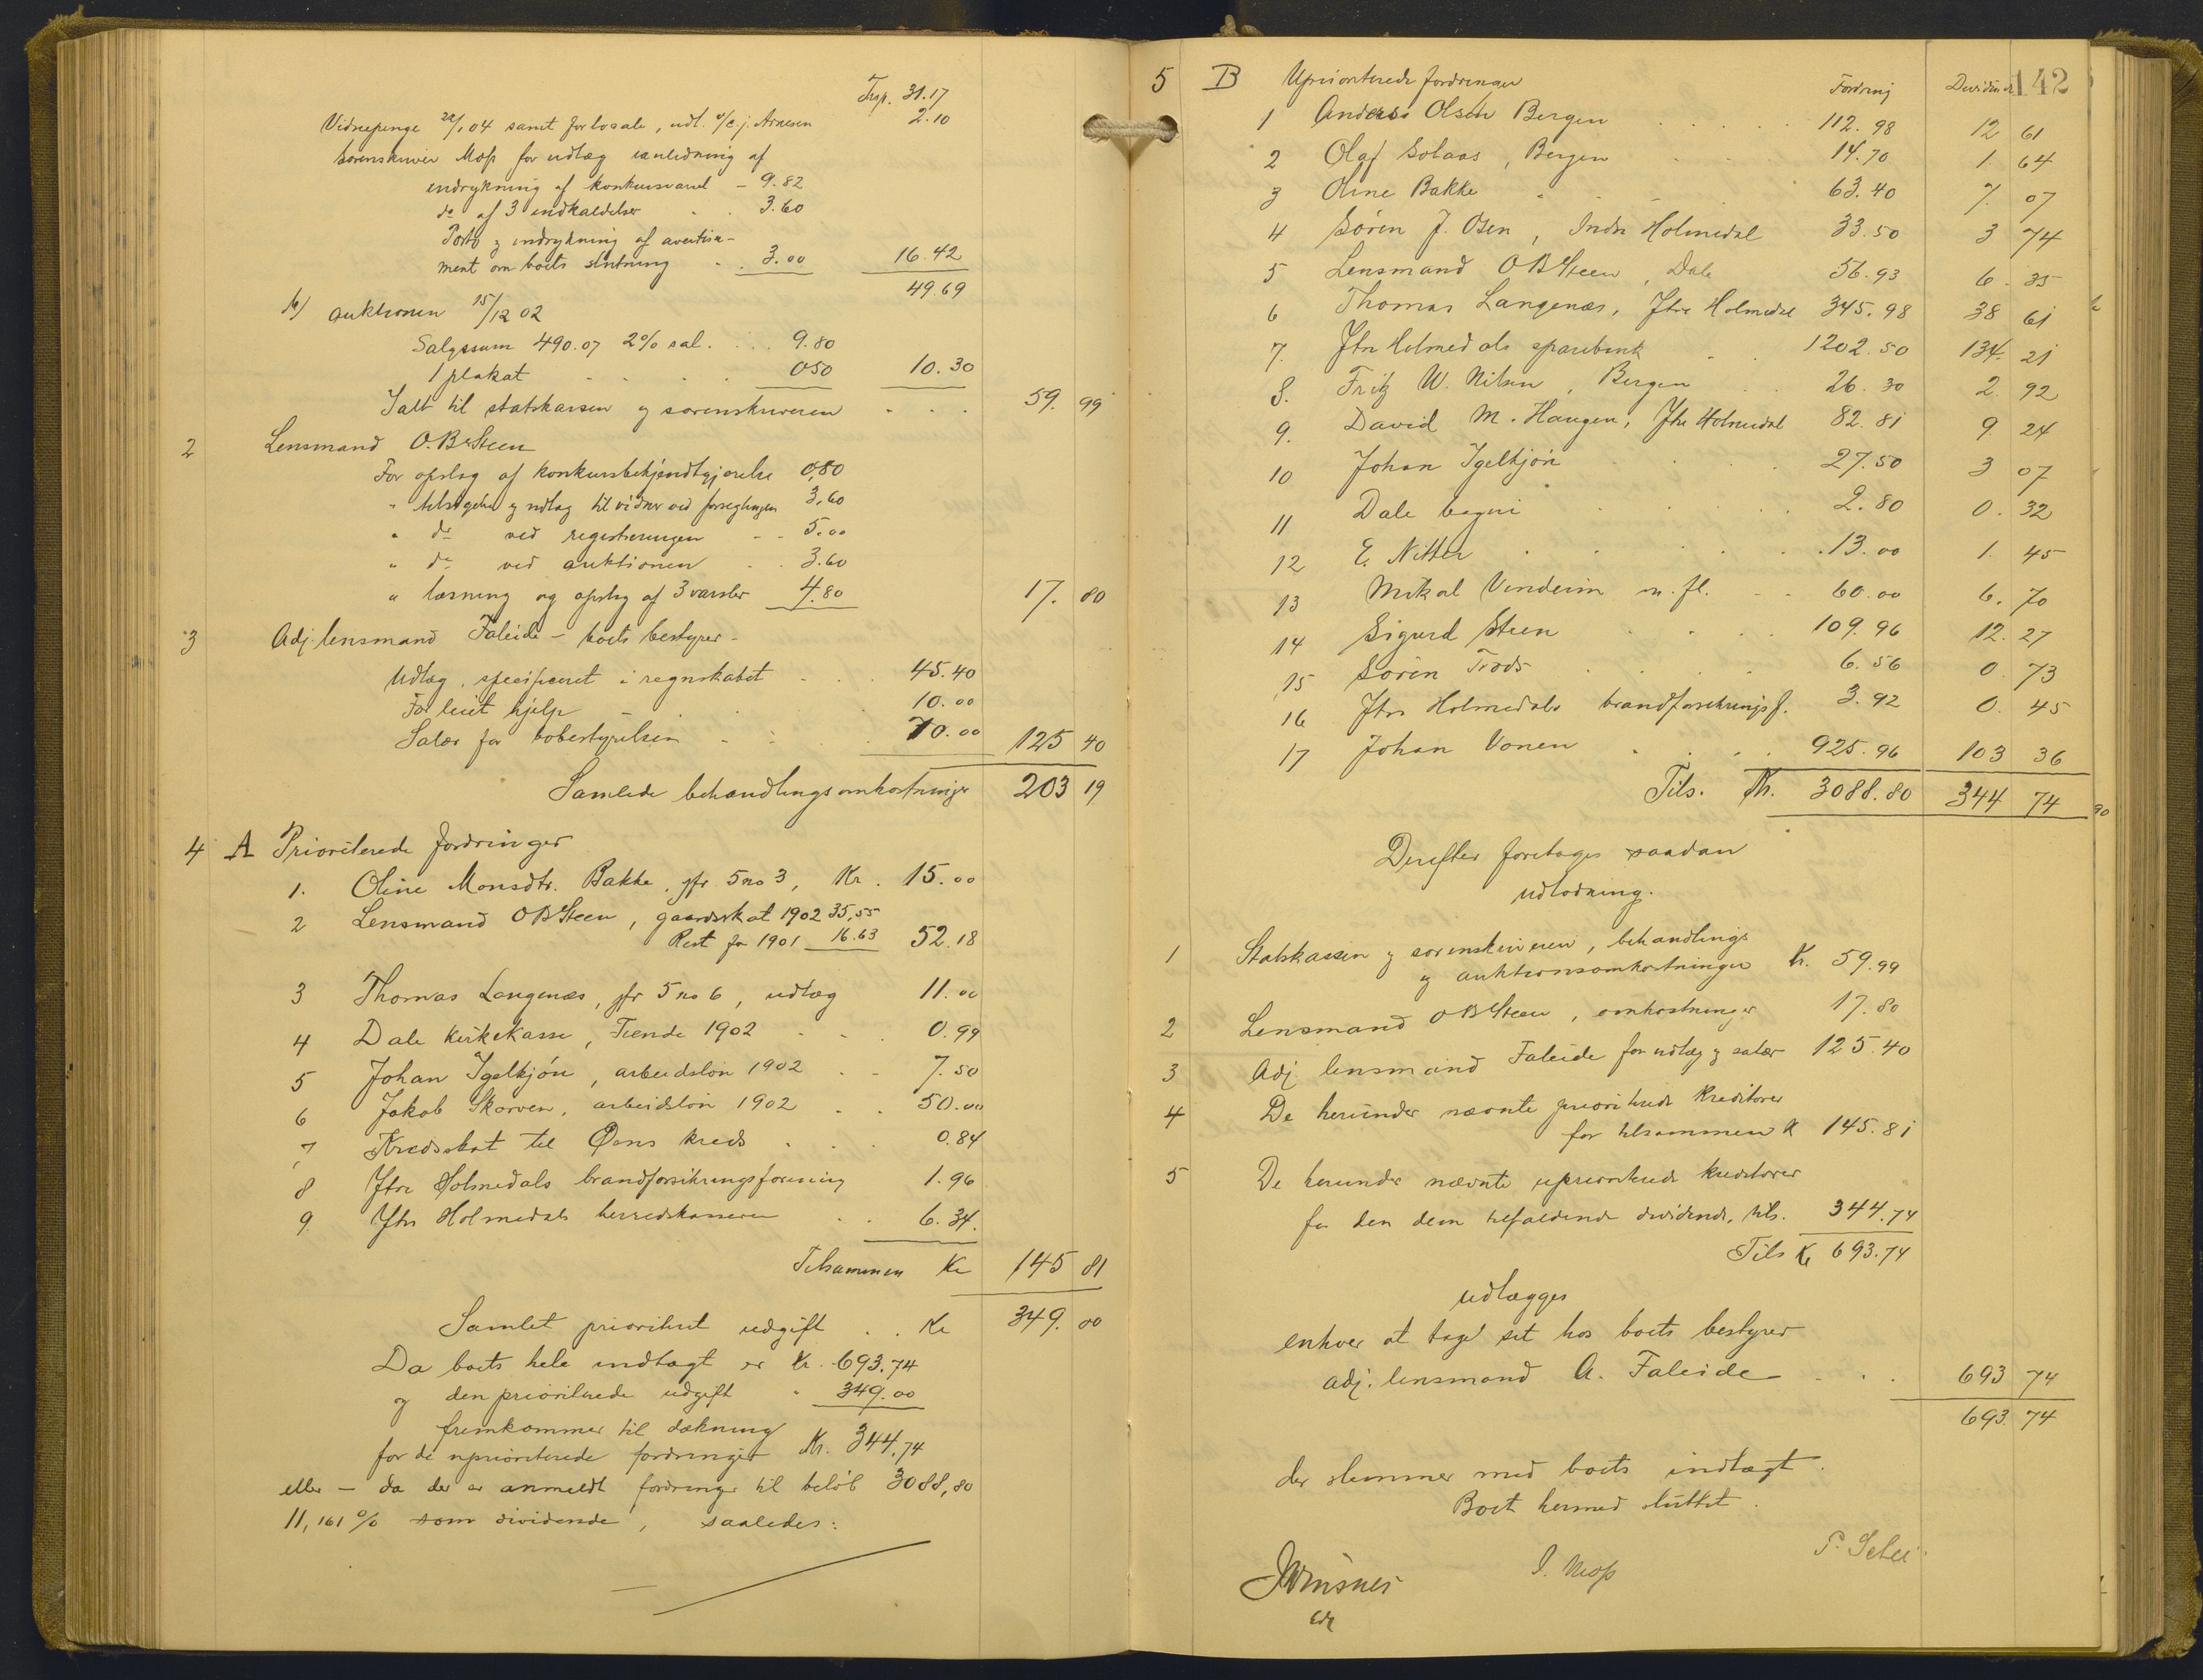 Trsp. 31.17
Vidnepenge 22/1 04 samt for locale, udl. v/c.j. Arnesen 2.10
Sorenskriver Moss for udlæg i anledning af
indrykning af konkursvarsel - 9.82
do af 3 indkaldelser 3.60
Porto og indrykning af avertisse-
ment om boets slutning 3.00 16.42
49.69
b) auktionen 15/12 02
Salgssum 490.07 2% sal. 9.80
1 plakat 0 50 10.30
Ialt til statskassen og sorenskriveren 59. 99
2 Lensmand O.B. Steen
For opslag af konkursbekjendtgjørelse 0,80
" tilsigelse og udlæg til vidner ved forseglingen 3,60
" do ved registreringen 5.00
" do ved auktionen 3.60
" læsning og opslag af 3 varsler 4.80 17. 80
3 Adj. lensmand Faleide - boets bestyrer -
Udlæg, specificeret i regnskabet 45.40
For leiet hjelp 10.00
Salær for bobestyrelsen 70.00 125 40
Samlede behandlingsomkostninger 203 19
4 A Prioriterede fordringer
1. Oline Monsdtr. Bakke, jfr 5 no 3, Kr. 15.00
2 Lensmand O B Steen, gaardsskat 1902 35,55
Rest for 1901 16.63 52.18
3 Thomas Langenæs, jfr 5 no 6, udlæg 11.00
4 Dale kirkekasse, Tiende 1902 0.99
5 Johan Igelkjøn, arbeidsløn 1902 7.50
6 Jakob Skorven, arbeidsløn 1902 50.00
7 Kredsskat til Øens kreds 0.84
8 Ytre Holmedals brandforsikringsforening 1.96
9 Ytre Holmedals herredskasserer 6.34.
Tilsammen Kr 145 81
Samlet prioritert udgift Kr 349. 00
Da boets hele indtægt er Kr. 693.74
og den prioriterede udgift " 349.00
fremkommer til dækning
for de uprioriterede fordringer Kr. 344.74
eller - da der er anmeldt fordringer til beløb 3088,80
11,161 % som dividende, saaledes:
142
5 B Uprioriterede fordringer Fordring Dividende
1 Anders Olsen Bergen 112.98 12 61
2 Olaf Solaas, Bergen 14.70 1. 64
3 Oline Bakke 63.40 7. 07
4 Søren J. Osen, Indre Holmedal 33.50 3 74
5 Lensmand O B Steen, Dale 56.93 6. 35
6 Thomas Langenæs, Ytre Holmedal 345.98 38 61
7. Ytre Holmedals sparebank 1202.50 134. 21
8. Fritz W. Nilsen, Bergen 26.30 2. 92
9. David M. Haugen, Ytre Holmedal 82.81 9. 24
10 Johan Igelkjøn 27.50 3 07
11 Dale bageri 2.80 0. 32
12 E. Nitter 13.00 1. 45
13 Mikal Vindeim m. fl. 60.00 6. 70
14 Sigurd Steen 109.96 12. 27
15 Søren Trods 6.56 0. 73
16 Ytre Holmedals brandforsikringsf. 3.92 0. 45
17 Johan Vonen 925.96 103 36
Tils. Kr. 3088.80 344 74
Derefter foretages saadan
udlodning.
1 Statskassen og sorenskriveren, behandlings
og auktionsomkostninger Kr. 59.99
2 Lensmand O B Steen, omkostninger 17.80
3 Adj. lensmand Faleide for udlæg og salær 125.40
4 De herunder nævnte prioriterede kreditorer
for tilsammen Kr 145.81
5 De herunder nævnte uprioriterede kreditorer
for den dem tilfaldende dividende, tils. 344.74
Tils Kr 693.74
udlægges
enhver at tage sit hos boets bestyrer
adj. lensmand A. Faleide 693 74
693. 74
der stemmer med boets indtægt.
Boet hermed sluttet.
I. Moss